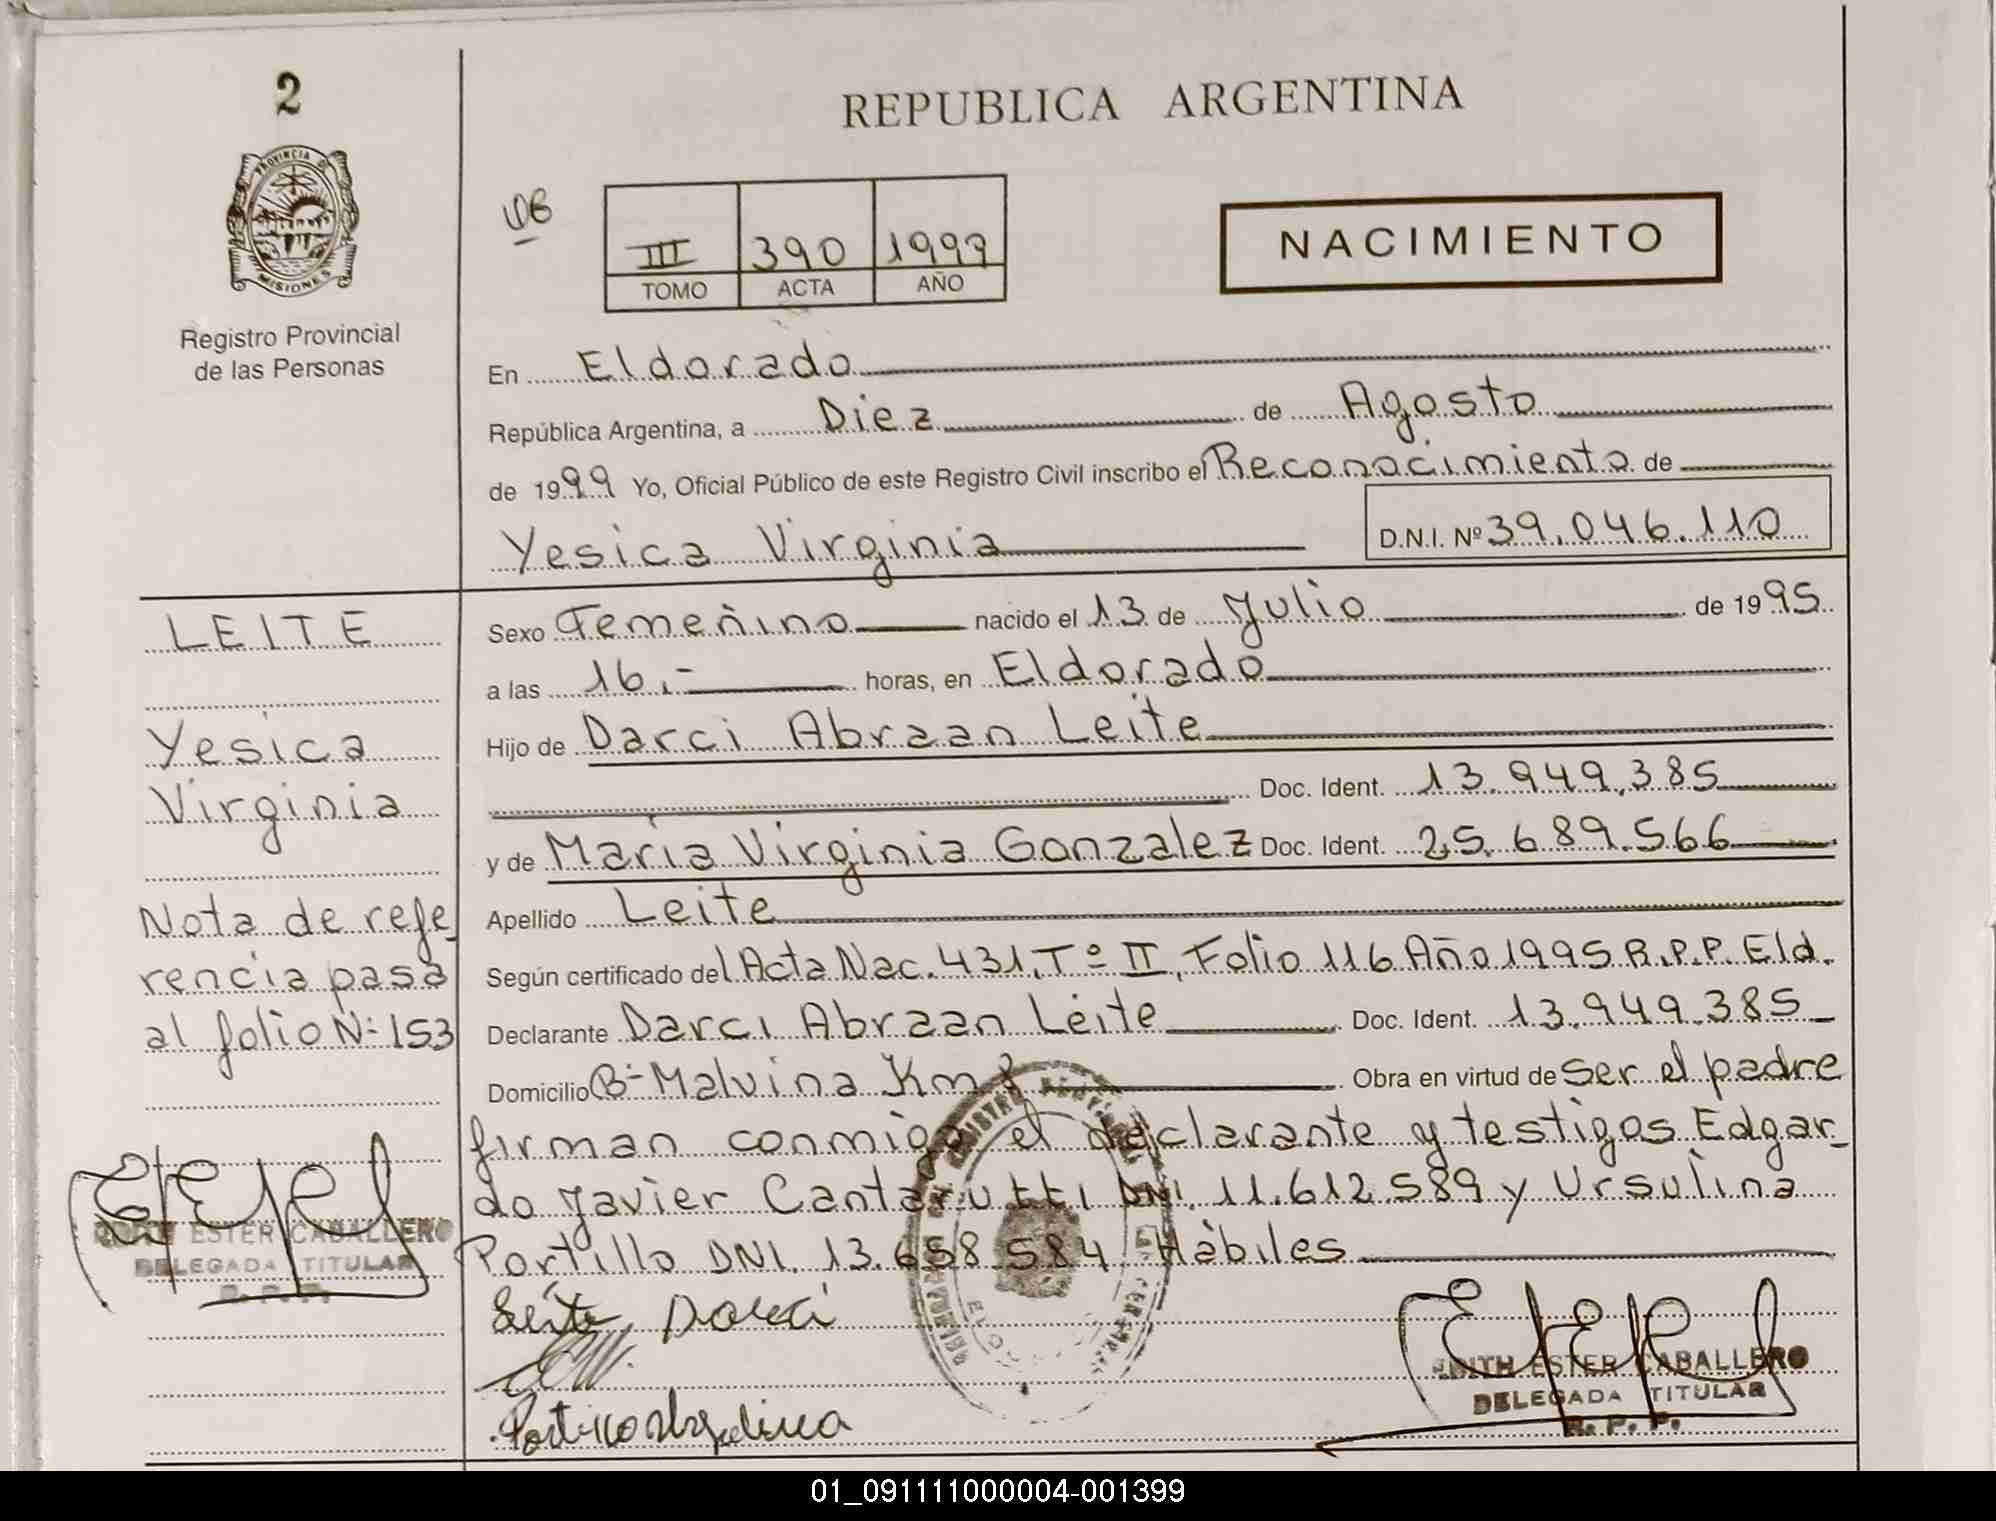 2
REPUBLICA ARGENTINA
PROVINCIA D
MISIONES
III 390 1999
TOMO ACTA AÑO
NACIMIENTO
Registro Provincial
de las Personas
En Eldorado
República Argentina, a Diez de Agosto
de 1999 Yo, Oficial Público de este Registro Civil inscribo el Reconocimiento de
Yesica Virginia D.N.I. Nº 39.046.110
LEITE
Yesica
Virginia
Nota de refe
rencia pasa
al folio Nº 153
EDITH ESTER CABALLERO
DELEGADA TITULAR
R. P. P.
Sexo Femeñino nacido el 13 de Julio de 1995
a las 16.- horas, en Eldorado
Hijo de Darci Abraan Leite
Doc. Ident. 13.949.385
y de Maria Virginia Gonzalez Doc. Ident. 25.689.566
Apellido Leite
Según certificado del Acta Nac. 431, Tº II, Folio 116 Año 1995 R.P.P. Eld.
Declarante Darci Abraan Leite Doc. Ident. 13.949.385
Domicilio Bº Malvina Km 8 Obra en virtud de ser el padre
firman conmigo el declarante y testigos Edgar-
do Javier Cantarutti DNI. 11.612.589 y Ursulina
Portillo DNI. 13.658.584 Hàbiles
Leite Darci
Portillo Ursulina
EDITH ESTER CABALLERO
DELEGADA TITULAR
R. P. P.
01_091111000004-001399